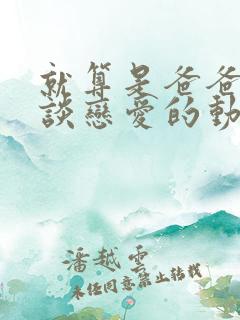 就算是爸爸
談戀愛的動
潘越雲
未經同意禁止轉載